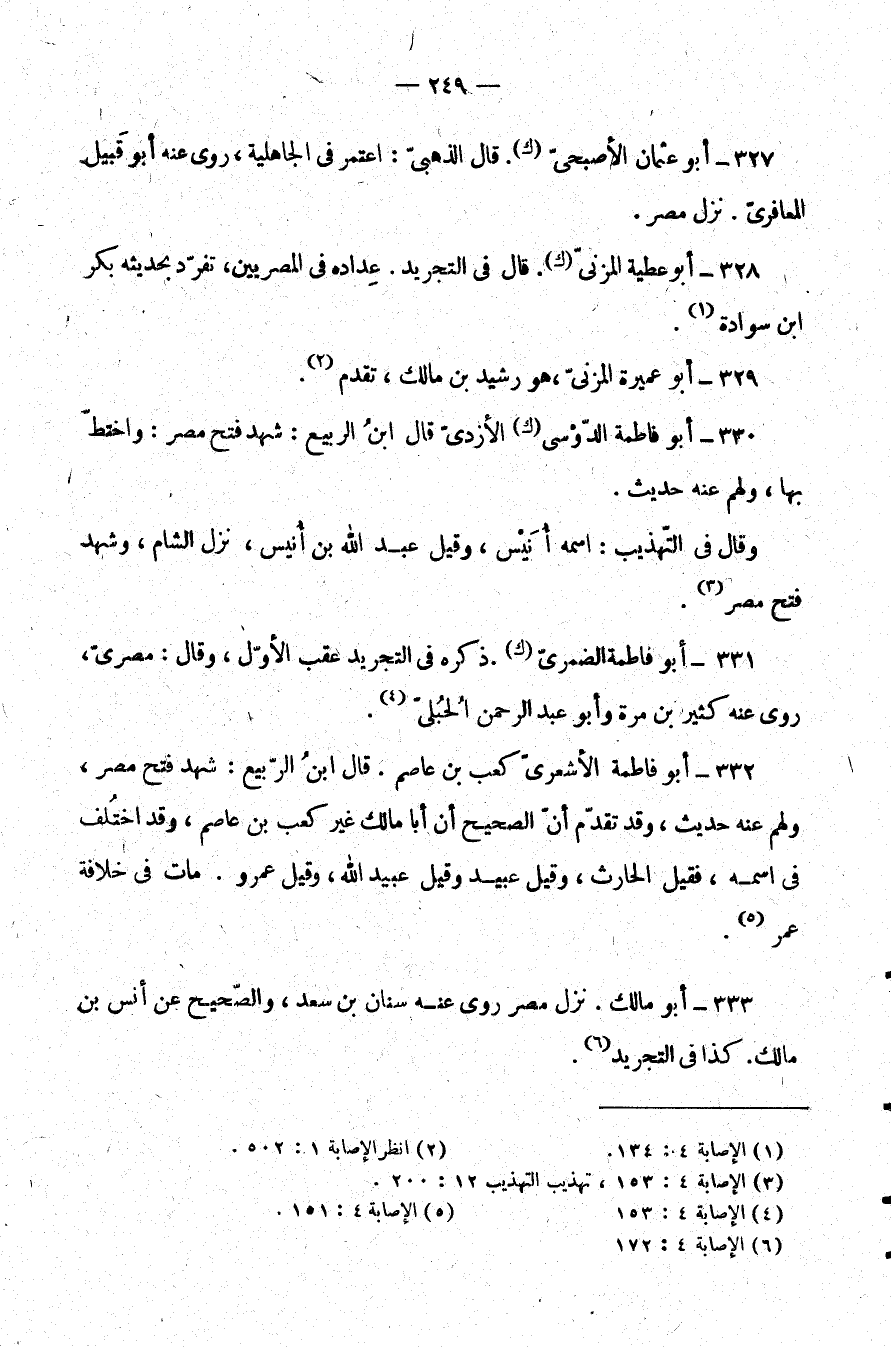 — ٢٤٩ —
٣٢٧ – أبو عثمان الأصبحىّ (ك). قال الذهبىّ : اعتمر فى الجاهلية ، روى عنه أبو قَبيل
المعافرىّ . نزل مصر .
٣٢٨ – أبو عطية المزنىّ (ك). قال فى التجريد . عِداده فى المصريين، تفرّد بحديثه بكر
ابن سوادة (١) .
٣٢٩ – أبو عميرة المزنىّ ، هو رشيد بن مالك ، تقدم (٢).
٣٣٠ – أبو فاطمة الدّوْسى (ك) الأزدىّ قال ابنُ الربيع : شهد فتح مصر : واختطّ
بها ، ولهم عنه حديث .
وقال فى التّهذيب : اسمه أُنَيْس ، وقيل عبد الله بن أُنيس ، نزل الشام ، وشهد
فتح مصر (٣) .
٣٣١ – أبو فاطمة الضمرىّ (ك) .ذكره فى التجريد عقب الأوّل ، وقال : مصرىّ ،
روى عنه كثير بن مرة وأبو عبد الرحمن الُحبُلىّ (٤) .
٣٣٢ – أبو فاطمة الأشعرىّ كعب بن عاصم . قال ابنُ الرّبيع : شهد فتح مصر ،
ولهم عنه حديث ، وقد تقدّم أنّ الصحيح أن أبا مالك غير كعب بن عاصم ، وقد اختُلف
فى اسمه ، فقيل الحارث ، وقيل عبيد وقيل عبيد الله ، وقيل عمرو . مات فى خلافة
عمر (٥) .
٣٣٣ – أبو مالك . نزل مصر روى عنه سنان بن سعد ، والصّحيح عن أنس بن
مالك. كذا فى التجريد (٦) .
(١) الإصابة ٤ : ١٣٤. (٢) انظر الإصابة ١ : ٥٠٢ .
(٣) الإصابة ٤ : ١٥٣ ، تهذيب التهذيب ١٢ : ٢٠٠ .
(٤) الإصابة ٤ : ١٥٣ (٥) الإصابة ٤ : ١٥١ .
(٦) الإصابة ٤ : ١٧٢